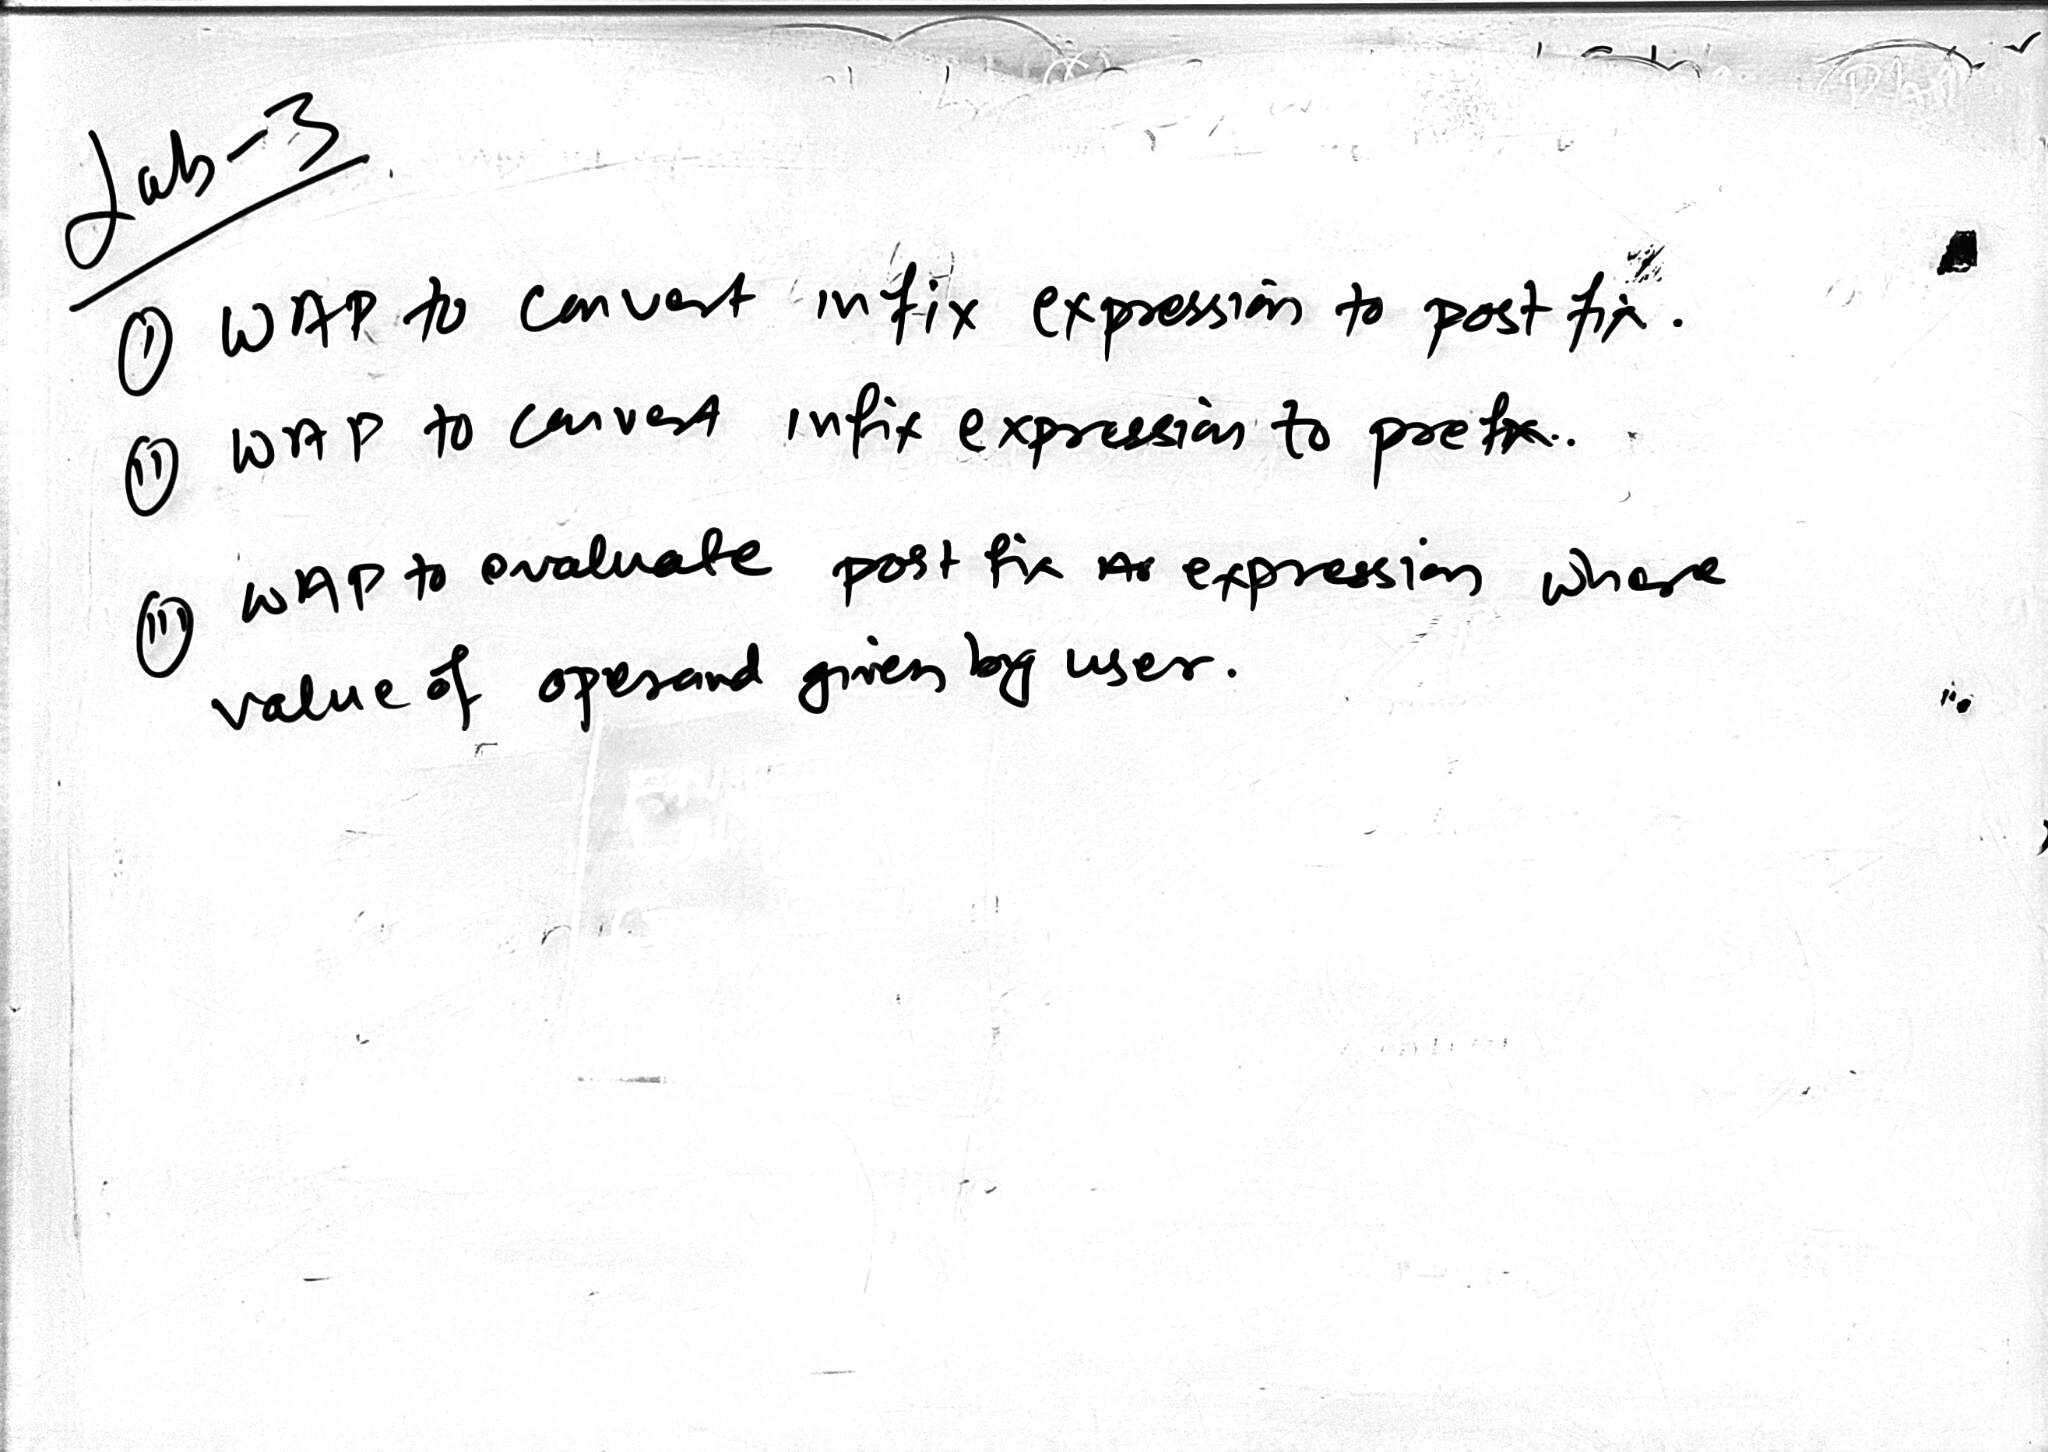 Lab-3
(i) WAP to convert infix expression to postfix.
(ii) WAP to convert infix expression to prefix.
(iii) WAP to evaluate postfix expression where
value of operand given by user.